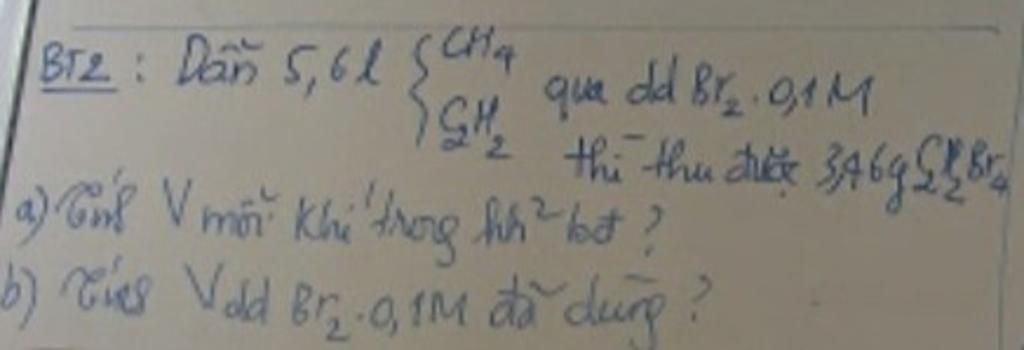 BT2: Dẫn 5,6l { CH4 qua dd Br2 0,1M
C2H2 thì thu được 3,46g C2H2Br4
a) Tính V mỗi khí trong hh² bđ?
b) Tính Vdd Br2 0,1M đã dùng?